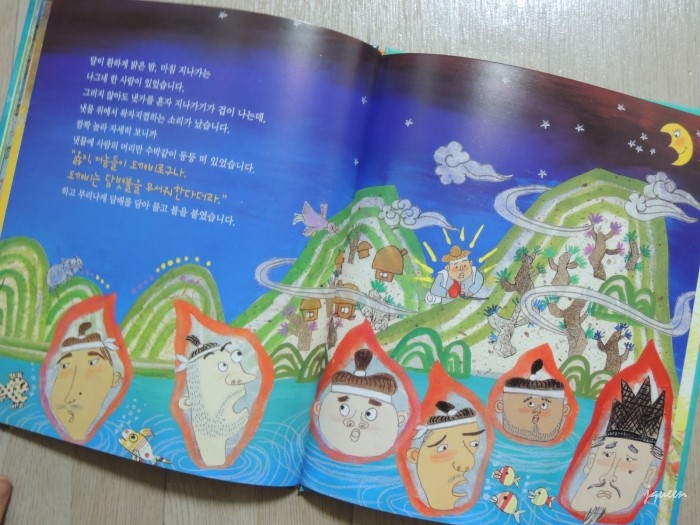 달이 환하게 밝은 밤, 마침 지나가는
나그네 한 사람이 있었습니다.
그러지 않아도 냇가를 혼자 지나가기가 겁이 나는데,
냇물 위에서 왁자지껄하는 소리가 났습니다.
깜짝 놀라 자세히 보니까
냇물에 사람의 머리만 수박같이 둥둥 떠 있었습니다.
"옳지, 저놈들이 도깨비로구나.
도깨비는 담뱃불을 무서워한다더라."
하고 부리나케 담배를 담아 물고 불을 붙였습니다.
jqueen